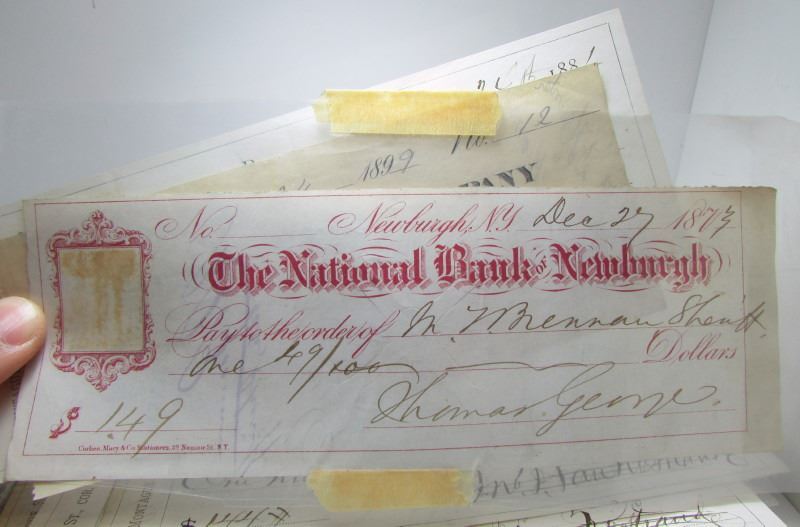 1881
No. 12
1899
PANY
No. Newburgh, N.Y. Dec 27 1873
The National Bank of Newburgh
Pay to the order of M. Brennan Sheriff
One 49/100 Dollars
$ 1.49 Thomas George.
Corlies, Macy & Co. Stationers, 39 Nassau St. N.Y.
ST. COR.
MONTAGU
$ 1448